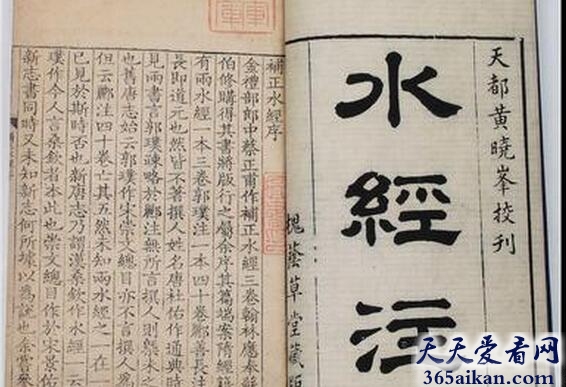 天都黃曉峯挍刊
水經注
槐蔭草堂藏版
補正水經序
金禮部郎中蔡正甫作補正水經三卷翰林應奉蘇
伯修購得其書將版行之屬余序其篇端案隋經籍
有兩水經一本三卷郭璞注一本四十卷酈善長注
長即道元也然皆不著撰人姓名唐杜佑作通典時
見兩書言郭璞疎略於酈注無所言撰人則槩未之
也舊唐志始云郭璞作宋崇文總目亦不言撰人為
但云酈注四十卷亡其五然未知兩水經之一在
已見於斯時否也新唐志乃謂漢桑欽作水經一云
璞作今人言桑欽者本此也崇文總目作於宋景佑
新志書同時又未知新志何所據以為說也余嘗參
天天爱看网
365aikan.com